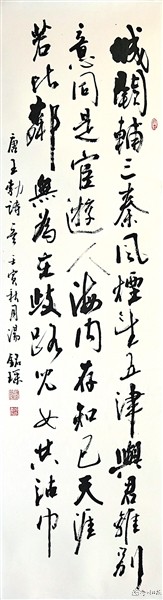 城闕輔三秦風煙望五津與君離別
意同是宦遊人海內存知己天涯
若比鄰無為在歧路兒女共沾巾
唐王勃詩意壬寅秋月湯銘琛